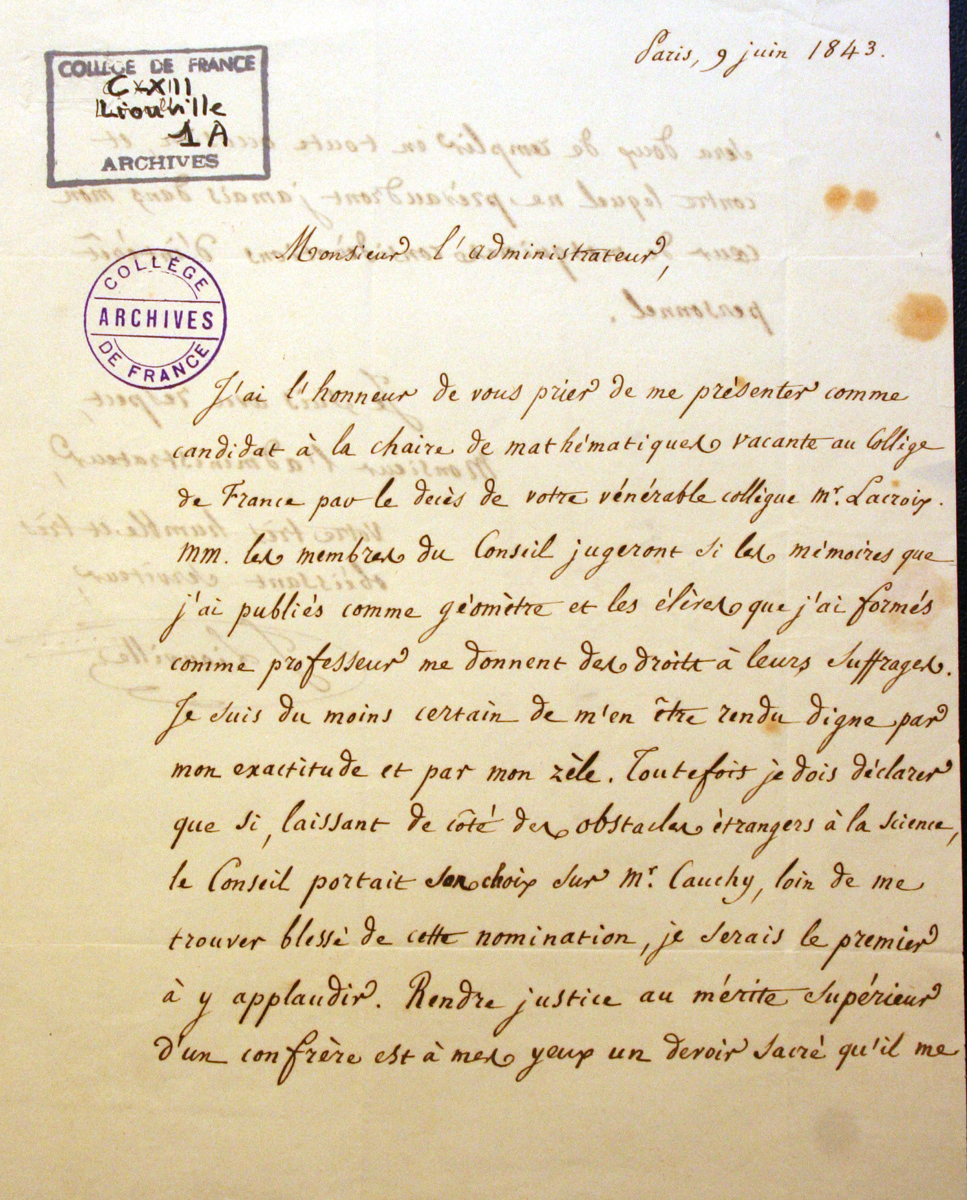 Paris, 9 juin 1843.
COLLEGE DE FRANCE
C-XIII
Liouville
1 A
ARCHIVES
Monsieur l'administrateur,
COLLÈGE
ARCHIVES
DE FRANCE
J'ai l'honneur de vous prier de me présenter comme
candidat à la chaire de mathématiques vacante au Collège
de France par le decès de votre vénérable collègue Mr. Lacroix.
MM. les membres du Conseil jugeront si les mémoires que
j'ai publiés comme géomètre et les élèves que j'ai formés
comme professeur me donnent des droits à leurs suffrages.
Je suis du moins certain de m'en être rendu digne par
mon exactitude et par mon zèle. Toutefois je dois déclarer
que si, laissant de côté des obstacles étrangers à la science,
le Conseil portait son choix sur Mr. Cauchy, loin de me
trouver blessé de cette nomination, je serais le premier
à y applaudir. Rendre justice au mérite supérieur
d'un confrère est à mes yeux un devoir sacré qu'il me